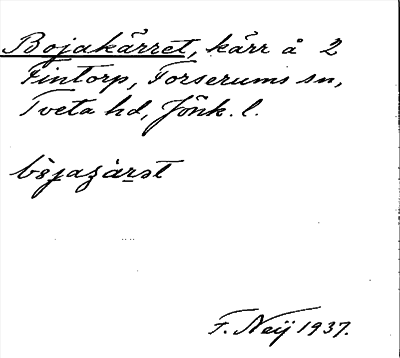 Bojakärret, kärr å 2
Fintorp, Forserums sn,
Tveta hd, Jönk. l.
F. Neij 1937.